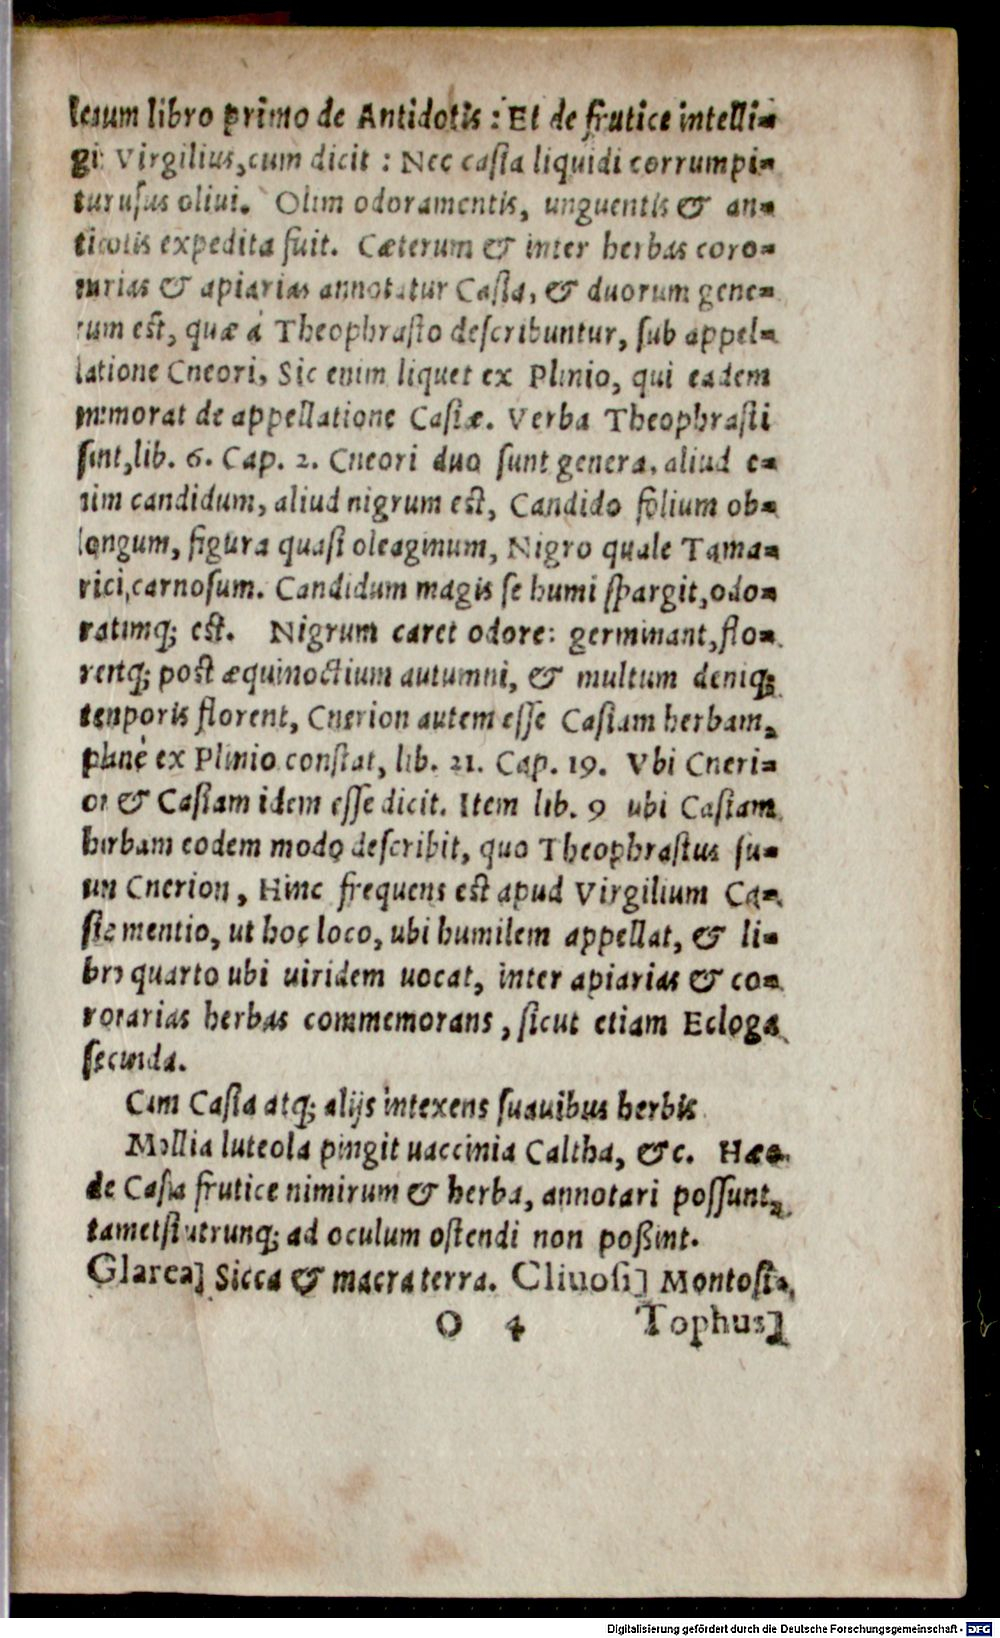 lenum libro primo de Antidotis : Et de frutice intelli⸗
git Virgilius, cum dicit : Nec casia liquidi corrumpi⸗
tur usus oliui. Olim odoramentis, unguentis & an⸗
tidotis expedita fuit. Cæterum & inter herbas coro⸗
narias & apiarias annotatur Casia, & duorum gene⸗
rum est, quæ à Theophrasto describuntur, sub appel⸗
latione Cneori, Sic enim liquet ex Plinio, qui eadem
memorat de appellatione Casiæ. Verba Theophrasti
sunt, lib. 6. Cap. 2. Cneori duo sunt genera, aliud e⸗
nim candidum, aliud nigrum est, Candido folium ob⸗
longum, figura quasi oleaginum, Nigro quale Tama⸗
rici, carnosum. Candidum magis se humi spargit, odo⸗
ratumq; est. Nigrum caret odore: germinant, flo⸗
rentq; post æquinoctium autumni, & multum deniq;
temporis florent, Cnerion autem esse Casiam herbam,
planè ex Plinio constat, lib. 21. Cap. 19. Vbi Cneri⸗
on & Casiam idem esse dicit. Item lib. 9 ubi Casiam
herbam eodem modo describit, quo Theophrastus su⸗
um Cnerion, Hinc frequens est apud Virgilium Ca⸗
siæ mentio, ut hoc loco, ubi humilem appellat, & li⸗
bro quarto ubi uiridem uocat, inter apiarias & co⸗
ronarias herbas commemorans, sicut etiam Ecloga
secunda.
Cum Casia atq; alijs intexens suauibus herbis
Mollia luteola pingit uaccinia Caltha, &c. Hæc
de Casia frutice nimirum & herba, annotari possunt,
tametsi utrunq; ad oculum ostendi non poßint.
Glarea] Sicca & macra terra. Cliuosi] Montosi,
O 4 Tophus]
Digitalisierung gefördert durch die Deutsche Forschungsgemeinschaft - DFG